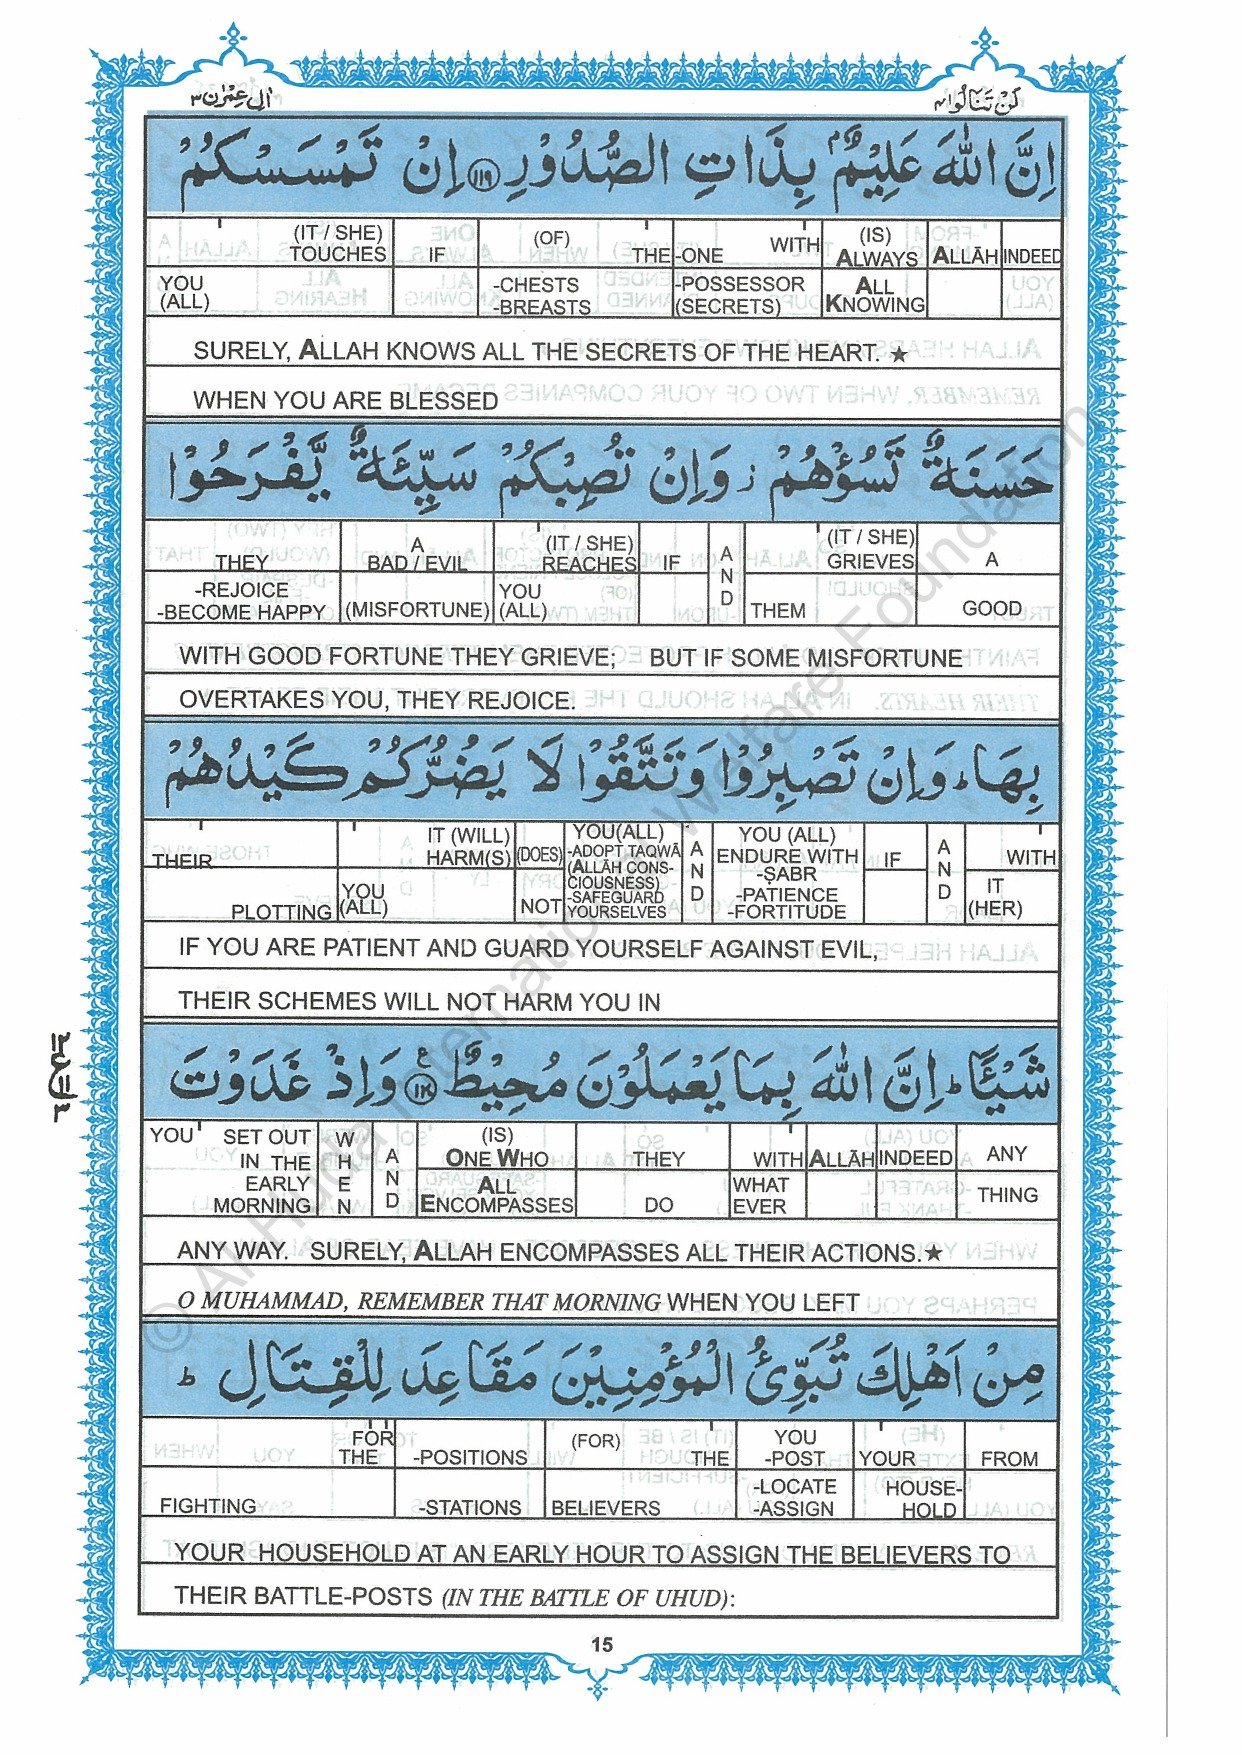 اٰل عمرٰن ٣
لن تنالوا ٤
اِنَّ اللّٰهَ عَلِيْمٌۢ بِذَاتِ الصُّدُوْرِ ﴿١١٩﴾ اِنْ تَمْسَسْكُمْ
(IT / SHE) TOUCHES IF (OF) THE -ONE WITH (IS) ALWAYS ALLĀH INDEED
YOU (ALL) -CHESTS -BREASTS -POSSESSOR (SECRETS) ALL KNOWING
SURELY, ALLAH KNOWS ALL THE SECRETS OF THE HEART. ★
WHEN YOU ARE BLESSED
حَسَنَةٌ تَسُؤْهُمْ ز وَاِنْ تُصِبْكُمْ سَيِّئَةٌ يَّفْرَحُوْا
THEY A BAD / EVIL (IT / SHE) REACHES IF AND (IT / SHE) GRIEVES A
-REJOICE -BECOME HAPPY (MISFORTUNE) YOU (ALL) THEM GOOD
WITH GOOD FORTUNE THEY GRIEVE; BUT IF SOME MISFORTUNE
OVERTAKES YOU, THEY REJOICE.
بِهَا ؕ وَاِنْ تَصْبِرُوْا وَتَتَّقُوْا لَا يَضُرُّكُمْ كَيْدُهُمْ
THEIR IT (WILL) HARM(S) (DOES) YOU(ALL) -ADOPT TAQWĀ (ALLĀH CONS-CIOUSNESS) -SAFEGUARD YOURSELVES AND YOU (ALL) ENDURE WITH -ṢABR -PATIENCE -FORTITUDE IF AND WITH
PLOTTING YOU (ALL) NOT IT (HER)
IF YOU ARE PATIENT AND GUARD YOURSELF AGAINST EVIL,
THEIR SCHEMES WILL NOT HARM YOU IN
شَيْـًٔا ؕ اِنَّ اللّٰهَ بِمَا يَعْمَلُوْنَ مُحِيْطٌ ﴿١٢٠﴾ وَاِذْ غَدَوْتَ
YOU SET OUT IN THE EARLY MORNING WHEN AND (IS) ONE WHO THEY WITH ALLĀH INDEED ANY
ALL ENCOMPASSES DO WHAT EVER THING
ANY WAY. SURELY, ALLAH ENCOMPASSES ALL THEIR ACTIONS.★
O MUHAMMAD, REMEMBER THAT MORNING WHEN YOU LEFT
مِنْ اَهْلِكَ تُبَوِّئُ الْمُؤْمِنِيْنَ مَقَاعِدَ لِلْقِتَالِ ؕ
FOR THE -POSITIONS (FOR) THE YOU -POST YOUR FROM
FIGHTING -STATIONS BELIEVERS -LOCATE -ASSIGN HOUSE-HOLD
YOUR HOUSEHOLD AT AN EARLY HOUR TO ASSIGN THE BELIEVERS TO
THEIR BATTLE-POSTS (IN THE BATTLE OF UHUD):
15
© Al Huda International Welfare Foundation